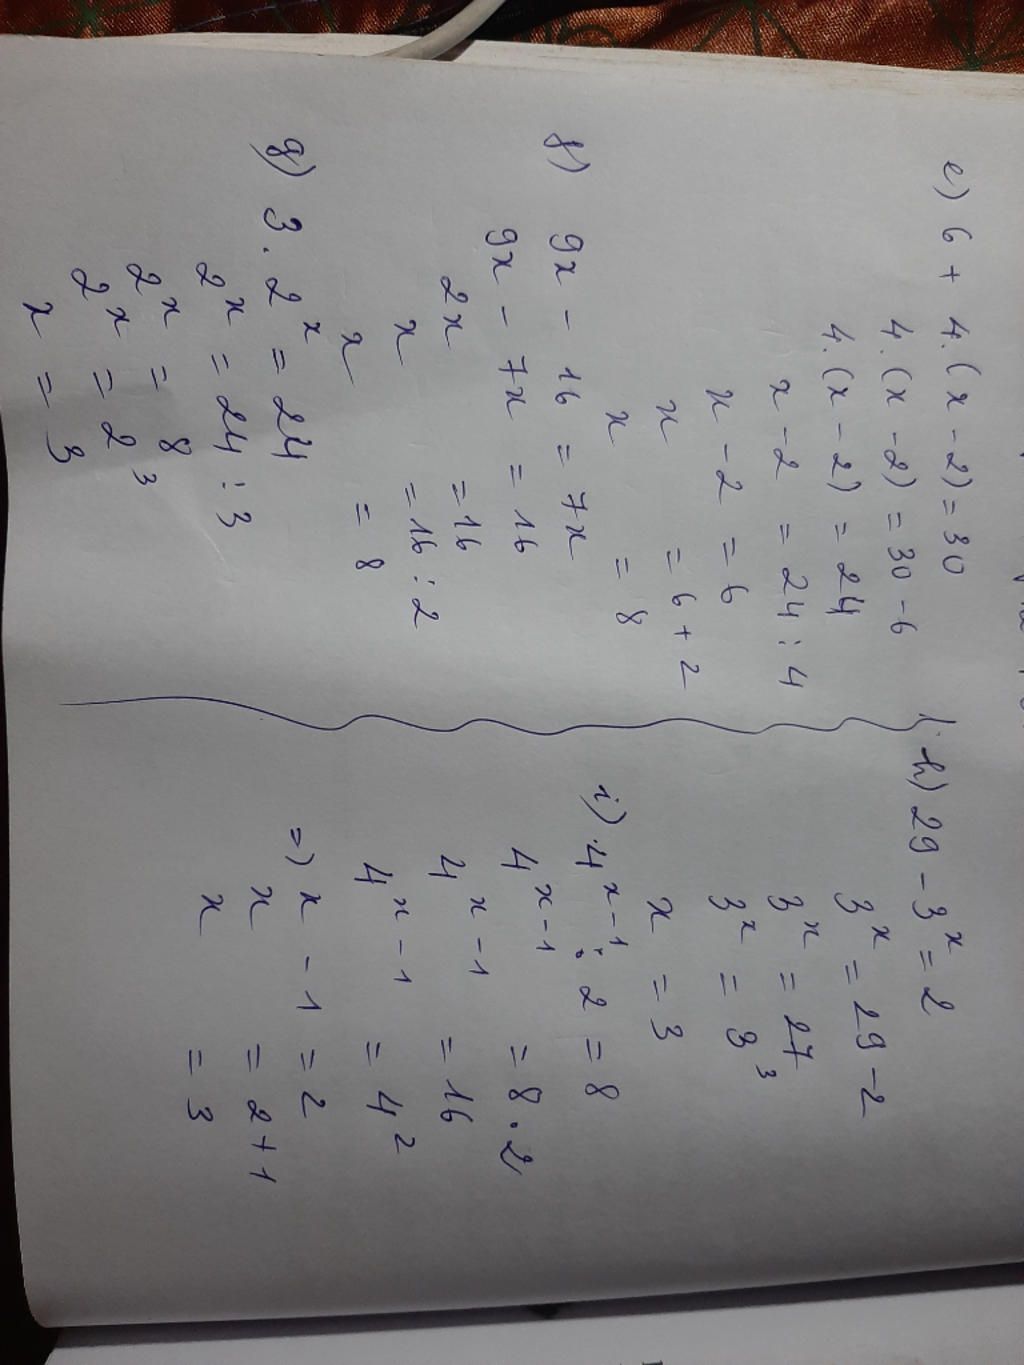 e) 6 + 4.(x - 2) = 30
4.(x - 2) = 30 - 6
4.(x - 2) = 24
x - 2 = 24 : 4
x - 2 = 6
x = 6 + 2
x = 8
f) 9x - 16 = 7x
9x - 7x = 16
2x = 16
x = 16 : 2
x = 8
g) 3 . 2^x = 24
2^x = 24 : 3
2^x = 8
2^x = 2^3
x = 3
h) 29 - 3^x = 2
3^x = 29 - 2
3^x = 27
3^x = 3^3
x = 3
i) 4^x-1 : 2 = 8
4^x-1 = 8 . 2
4^x-1 = 16
4^x-1 = 4^2
=) x - 1 = 2
x = 2 + 1
x = 3